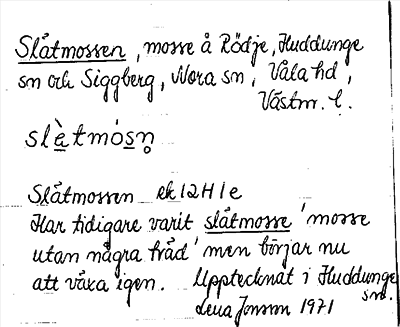 Slåtmossen, mosse å Rödje, Huddunge
sn och Siggberg, Nora sn, Våla hd,
Västm. l.
slὲ̱tmós̱n̥
Slåtmossen ek 12H1e
Har tidigare varit slåtmosse 'mosse
utan några träd' men börjar nu
att växa igen. Upptecknat i Huddunge
sn.
Lena Jonsson 1971